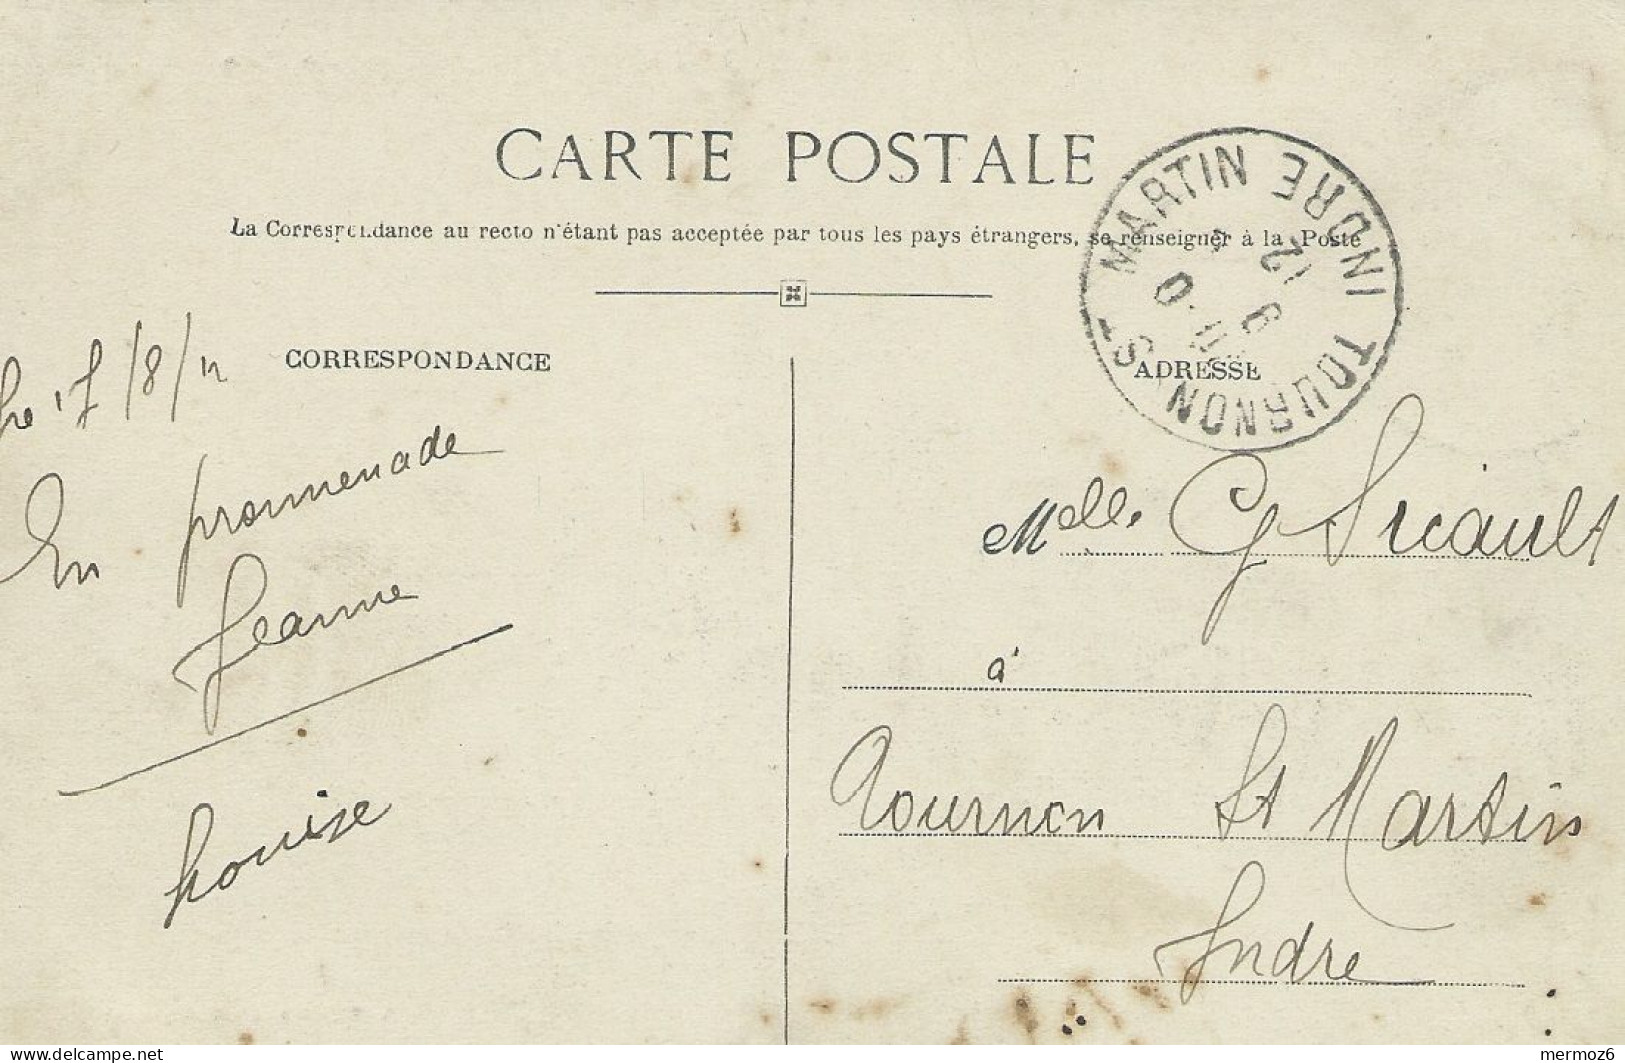 CARTE POSTALE
La Correspondance au recto n'étant pas acceptée par tous les pays étrangers, se renseigner à la Poste
TOURNON-ST MARTIN INDRE
CORRESPONDANCE
17/8/12
En promenade
Jeanne
Louise
ADRESSE
Melle. G Sicault
à
Tournon St Martin
Indre
mermoz6